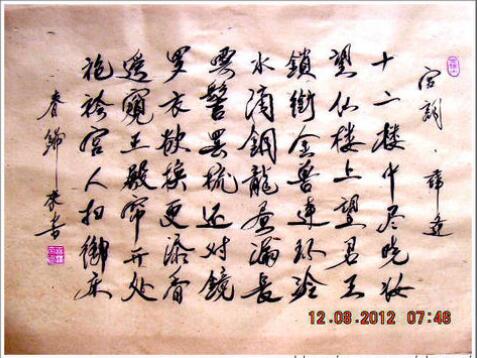 宫词·薛逢
十二楼中尽晓妆
望仙楼上望君王
鎖衔金兽连环冷
水滴銅龙昼漏长
雲髻罢梳还对镜
罗衣欲换更添香
遥窥正殿帘开处
袍袴宫人扫御床
春归
12.08.2012 07:46